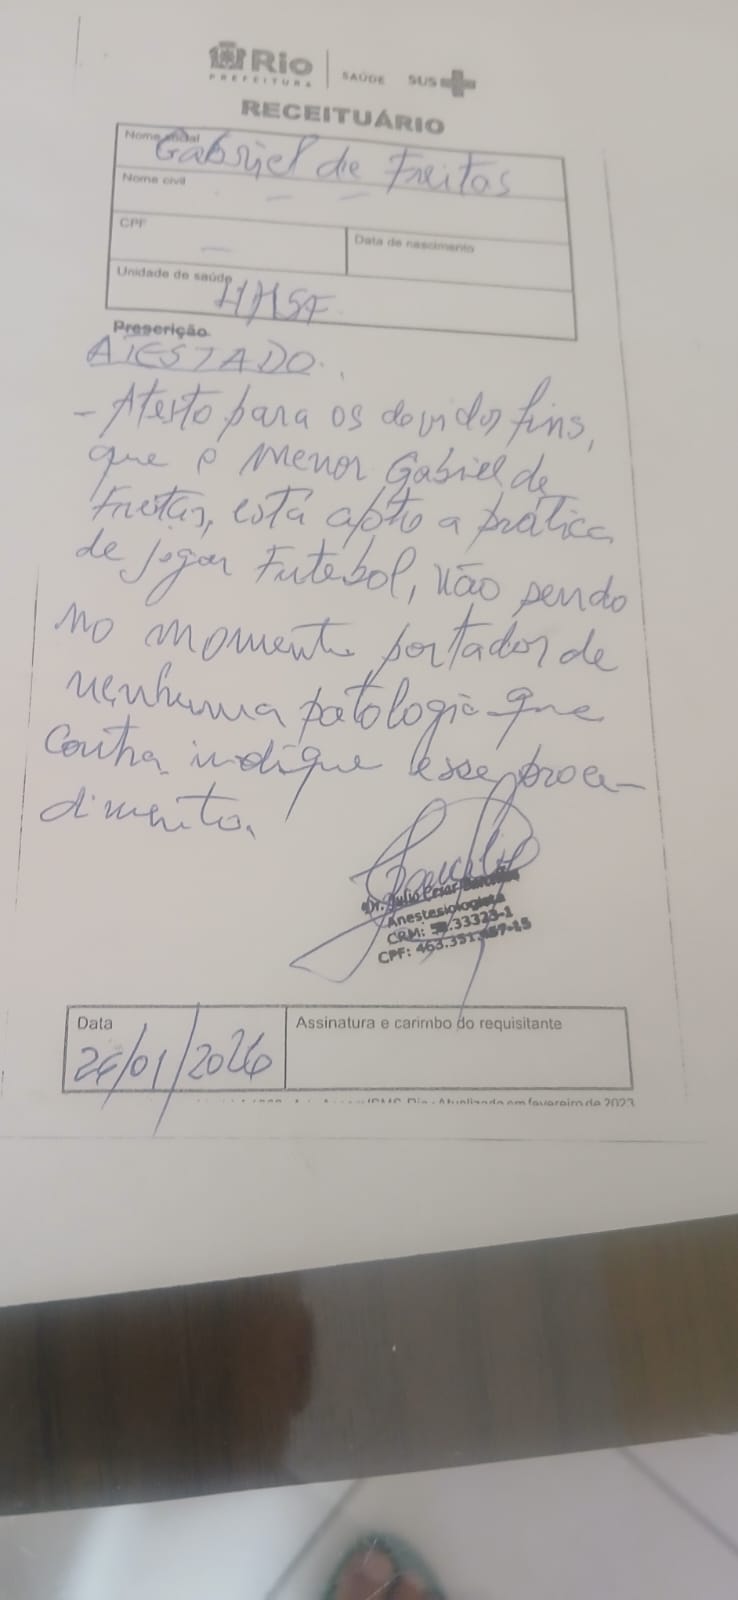 Rio
PREFEITURA
SAÚDE
SUS
RECEITUÁRIO
Nome social
Gabriel de Freitas
Nome civil
CPF
Data de nascimento
Unidade de saúde
Prescrição
ATESTADO.
- Atesto para os devidos fins,
que o menor Gabriel de
Freitas, está apto a prática
de jogar Futebol, não sendo
no momento portador de
nenhuma patologia que
contra indique esse proce-
dimento.
Dr. Julio Cesar
Anestesiologista
CRM: 33323-1
CPF:
Data
Assinatura e carimbo do requisitante
26/01/2026
Atualizado em fevereiro de 2023